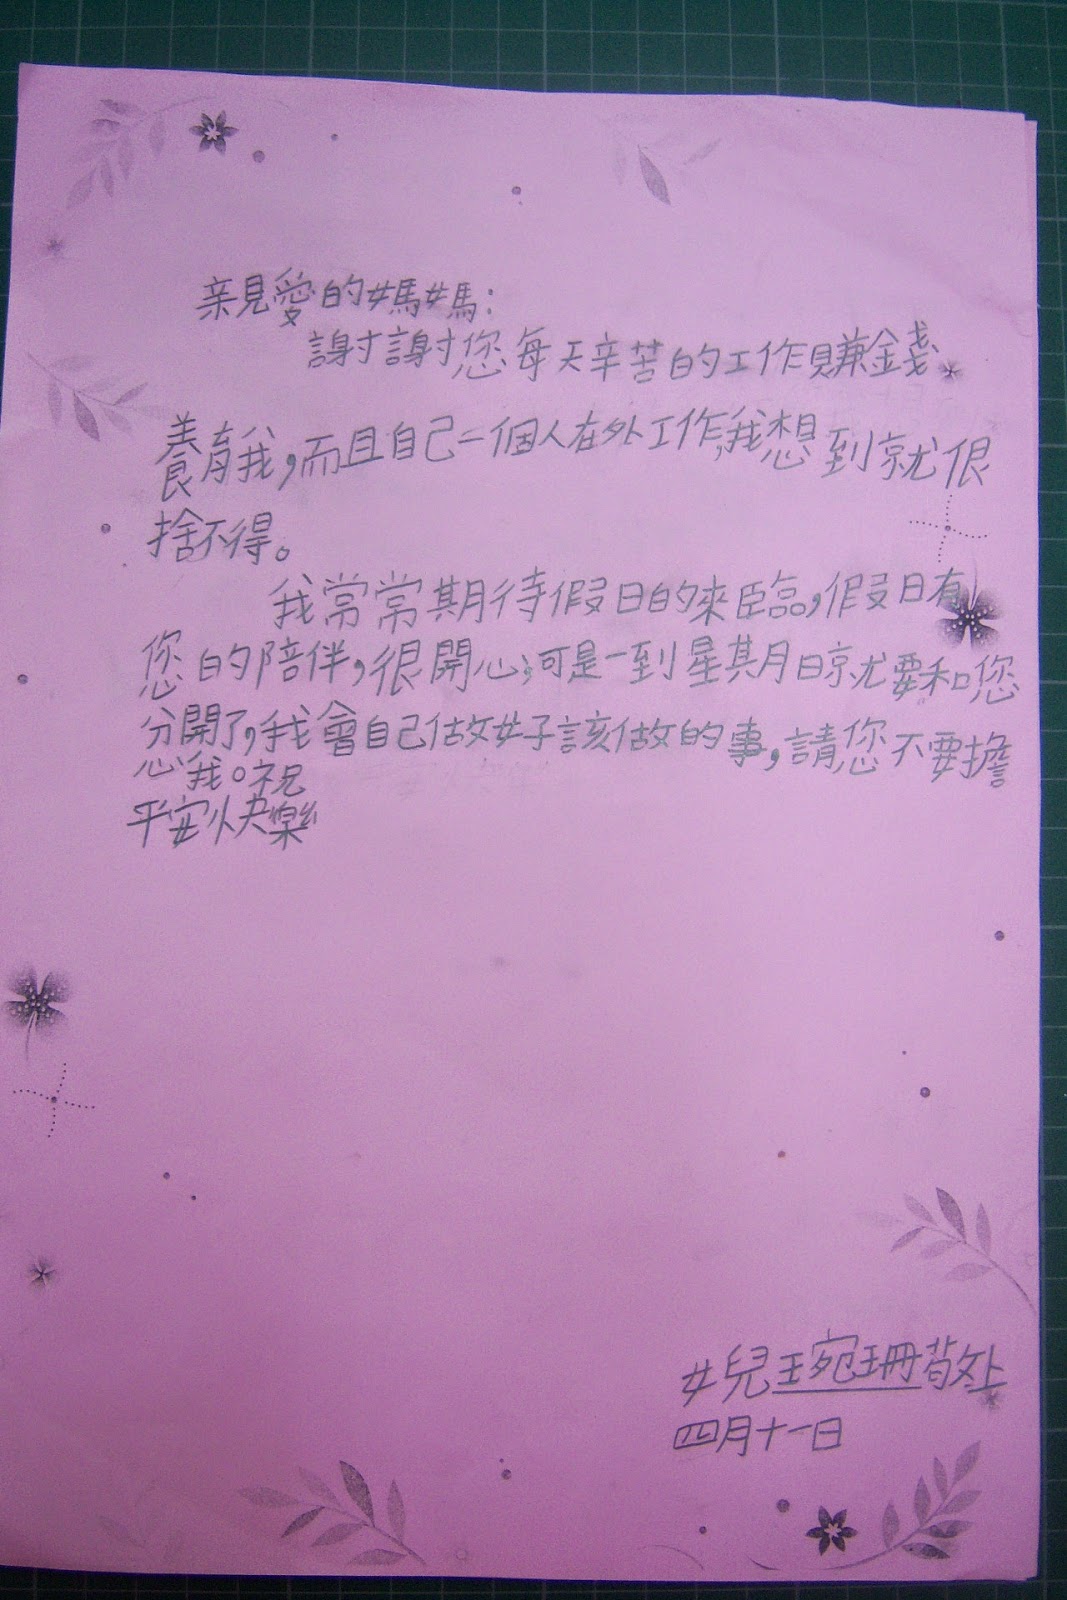 親愛的媽媽：
謝謝您每天辛苦的工作賺錢、
養育我，而且自己一個人在外工作，我想到就很
捨不得。
我常常期待假日的來臨，假日有
您的陪伴，很開心；可是一到星期日就要和您
分開了，我會自己做好該做的事，請您不要擔
心我。祝
平安快樂
女兒王宛珊敬上
四月十一日